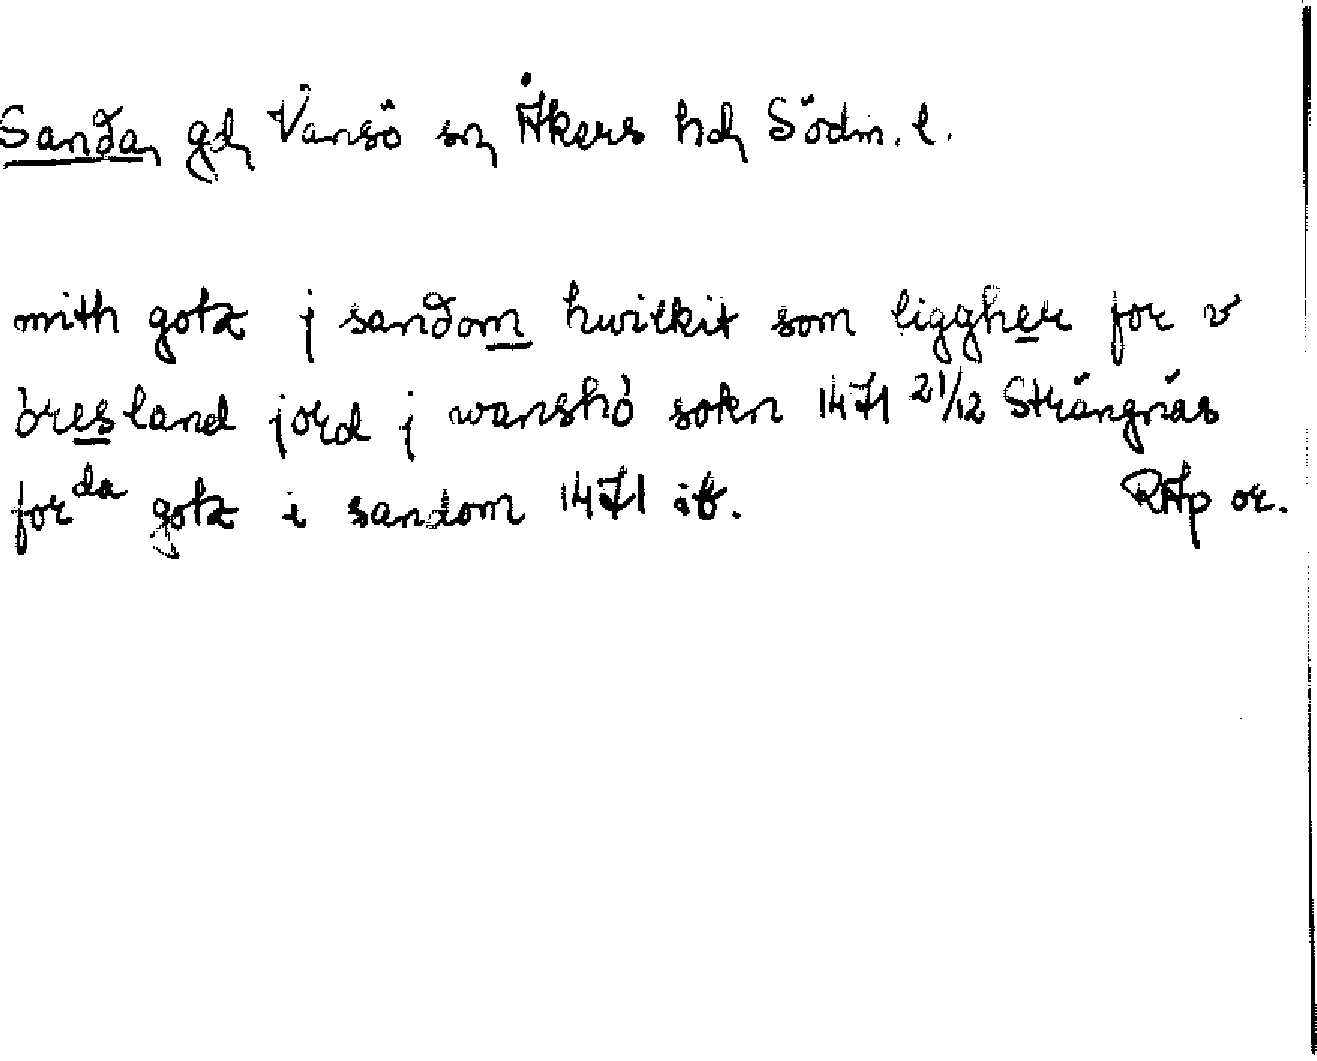 Sanda, gd, Vansö sn, Åkers hd, Södm. l.
mith gotz j sandom hwilkit som liggher for v
öresland jord j wanshö sokn 1471 21/12 Strängnäs
for da gotz i sandom 1471 ib. RAp or.